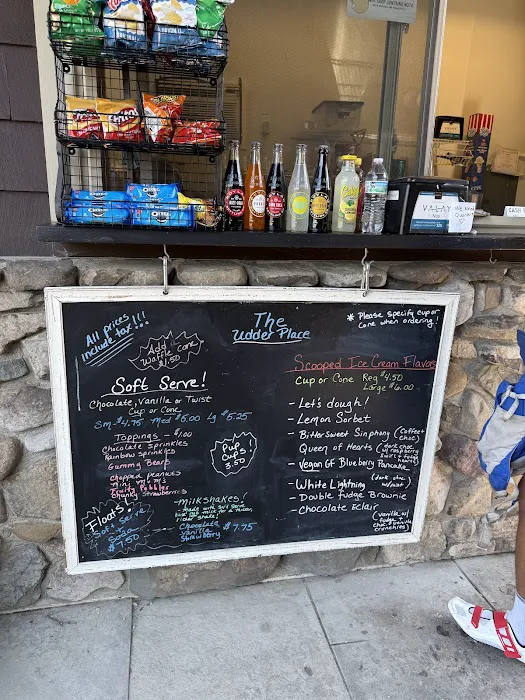 All prices
include tax!!!
Add
Waffle Cone
$1.50
The
Udder Place
* Please specify cup or
Cone when ordering!
Soft Serve!
Chocolate, Vanilla or Twist
Cup or Cone
Sm $4.75 Med $5.00 Lg $5.25
Toppings - $1.00
Chocolate sprinkles
Rainbow sprinkles
Gummy Bears
Chopped peanuts
Mini m+m's
Fruity Pebbles
Chunky Strawberries
Pup
Cups!
3.50
Floats!
Soft Serve
&
Soda
$7.50
Milkshakes!
made with soft serve
Chocolate
Vanilla $7.75
Strawberry
Scooped Ice Cream Flavors
Cup or Cone Reg $4.50
Large $6.00
- Let's dough!
- Lemon Sorbet
- Bittersweet Sinphony (coffee +
choc)
Queen of Hearts (dark choc
w/ raspberry
swirl + fudge
- Vegan GF Blueberry Pancake
- White Lightning (dark choc
- Double Fudge Brownie
- Chocolate Eclair
(vanilla w/
fudge +
choc + vanilla
crunchies)